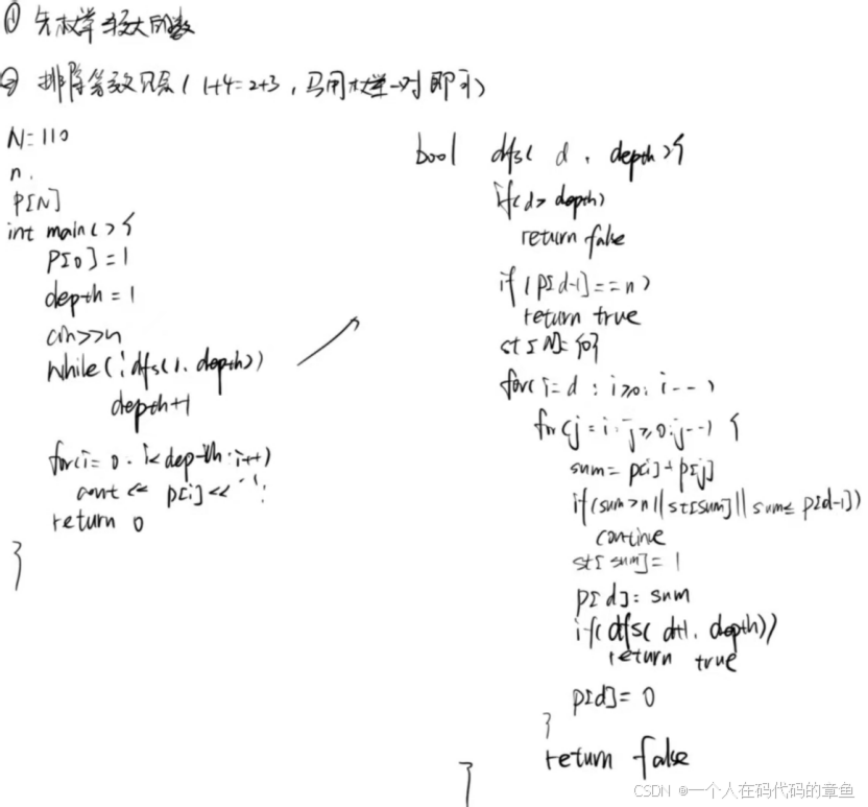 ① 先枚举较大的数
② 排除等效冗余(1+4=2+3,只用枚举一对即可)
N=110
n.
P[N]
int main(){
P[0]=1
depth=1
cin>>n
while(!dfs(1.depth))
depth+1
for(i=0.i<depth.i++)
cout<<p[i]<<' ';
return 0
}
bool dfs( d. depth){
if(d>depth)
return false
if(p[d-1]==n)
return true
st[N]={0}
for(i=d:i≥0:i--)
for(j=i:j≥0:j--){
sum=p[i]+p[j]
if(sum>n||st[sum]||sum≤p[d-1])
continue
st[sum]=1
p[d]=sum
if(dfs(d+1.depth))
return true
p[d]=0
}
return false
}
CSDN @一个人在码代码的章鱼